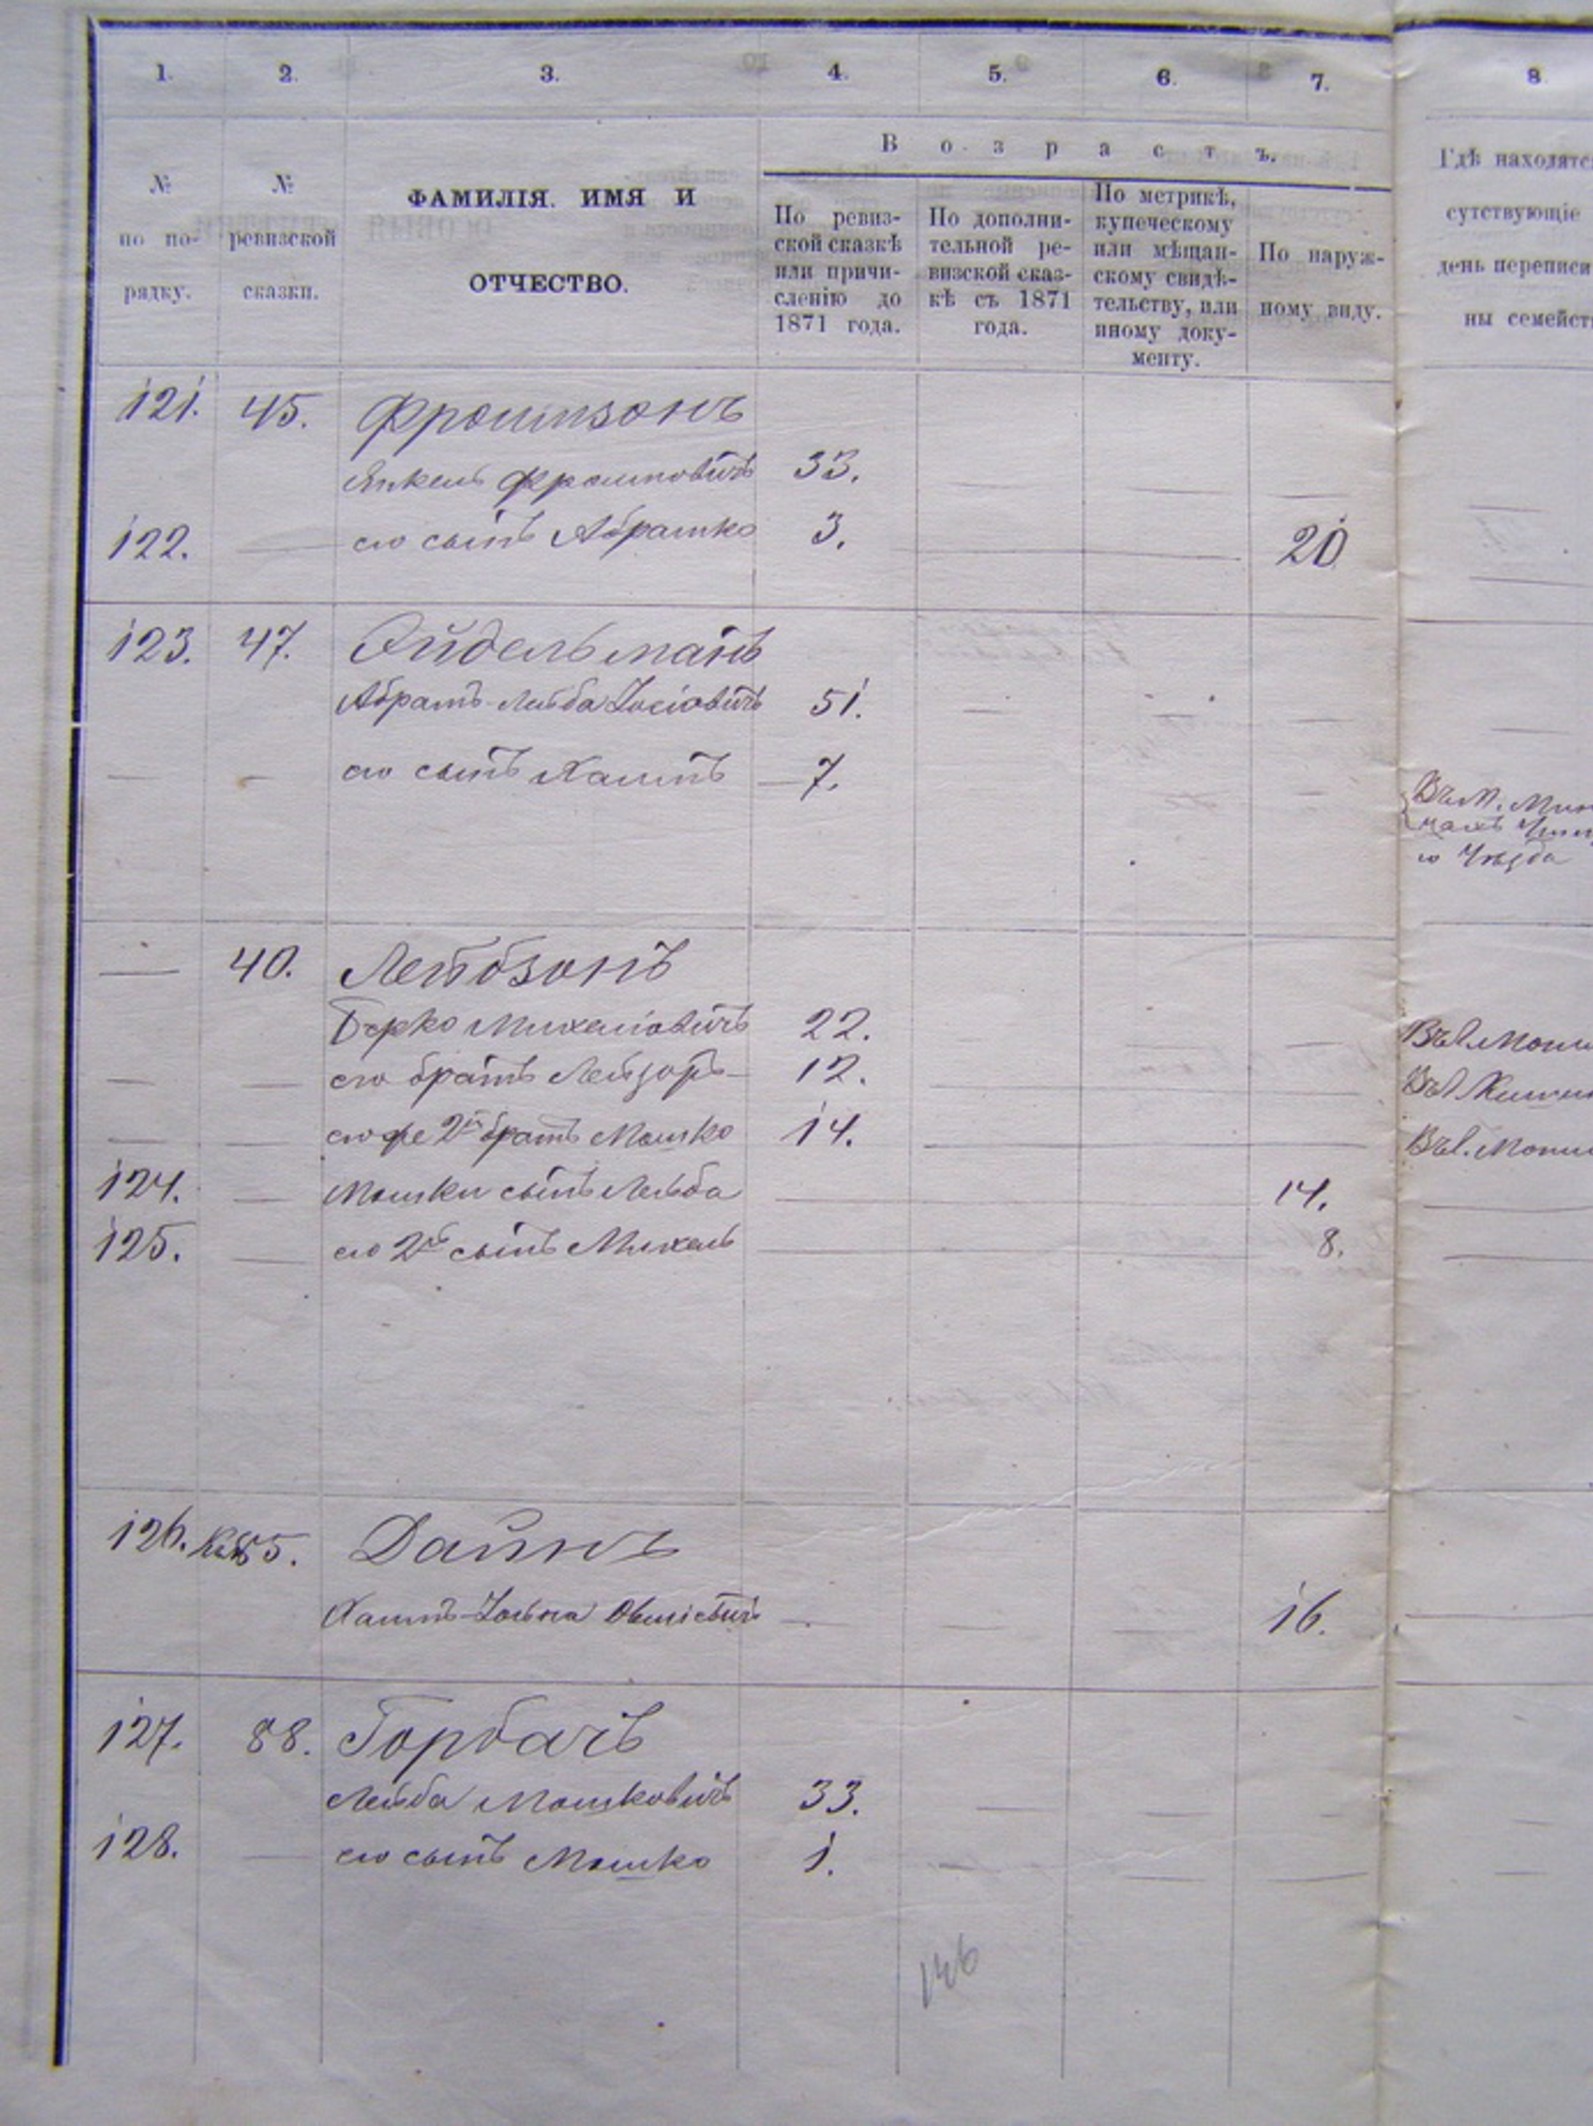 1. 2. 3. 4. 5. 6. 7. 8
№ по порядку.
№ ревизской сказки.
ФАМИЛІЯ. ИМЯ И ОТЧЕСТВО.
Возрастъ.
По ревизской сказкѣ или причисленію до 1871 года.
По дополнительной ревизской сказкѣ съ 1871 года.
По метрикѣ, купеческому или мѣщанскому свидѣтельству, или иному документу.
По наружному виду.
Гдѣ находятс
сутствующіе
день переписи
ны семейст
121. 45. Фроимзонъ
Янкель Фроимовичъ 33.
122. его сынъ Абрамко 3. 20
123. 47. Эйдельманъ
Абрамъ-Лейба Іосіовичъ 51.
его сынъ Хаимъ 7.
Въ М.
уѣзда
40. Лейбзонъ
Берко Михелiовичъ 22.
его братъ Лейзоръ 12.
его же 2й братъ Мошко 14.
124. Мошки сынъ Лейба 14.
125. его 2й сынъ Михель 8.
126. 85. Дайнъ
Хаимъ-Іойна Овшіевичъ 16.
127. 88. Горбачъ
Лейба Мошковичъ 33.
128. его сынъ Мошко 1.
146